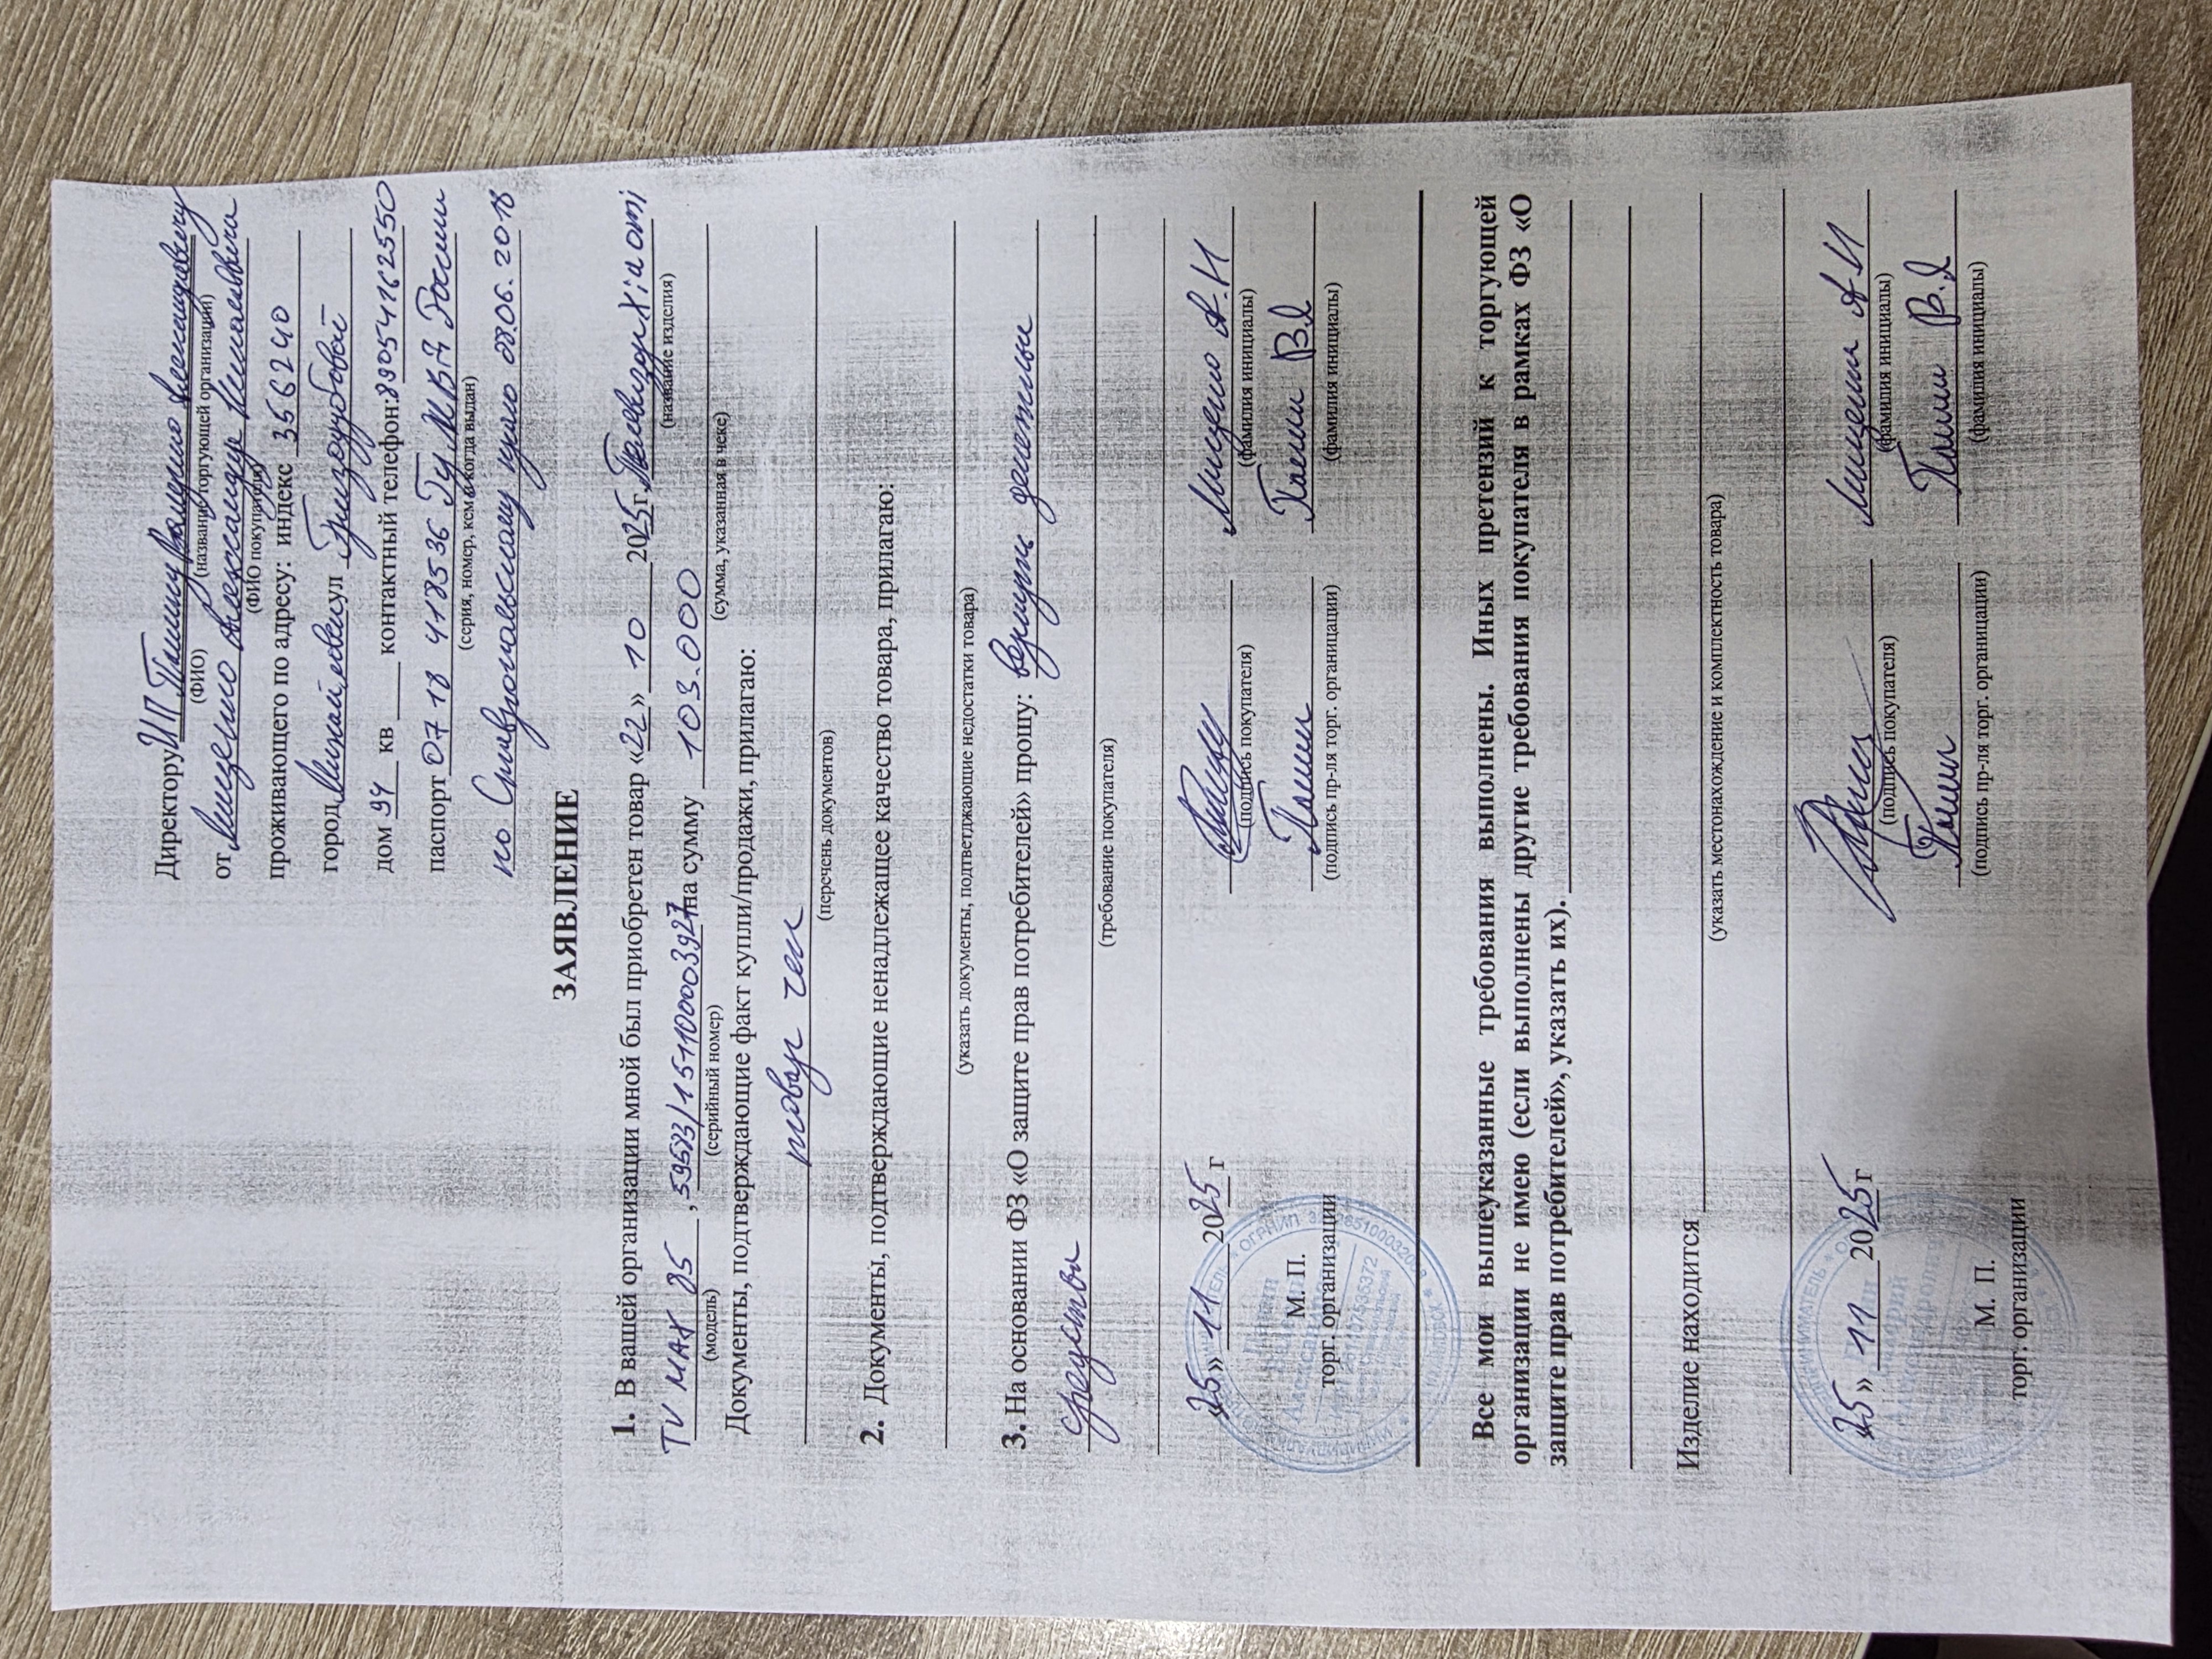 Директору ИП Валерию Александровичу
(ФИО) (название торгующей организации)
от Александр Николаевича
(ФИО покупателя)
проживающего по адресу: индекс 356240
город Михайловск ул Гризодубовой
дом 94 кв контактный телефон: 89054162550
паспорт 07 18 418536 ГУ МВД России
(серия, номер, кем и когда выдан)
по Ставропольскому краю 08.06.2018
ЗАЯВЛЕНИЕ
1. В вашей организации мной был приобретен товар «22» 10 2025г. Телевизор Xiaomi
(название изделия)
TV MAX 85, 59583/151100003927 на сумму 103.000
(модель) (серийный номер) (сумма, указанная в чеке)
Документы, подтверждающие факт купли/продажи, прилагаю:
товар чек
(перечень документов)
2. Документы, подтверждающие ненадлежащее качество товара, прилагаю:
(указать документы, подтверждающие недостатки товара)
3. На основании ФЗ «О защите прав потребителей» прошу: вернуть денежные
средства
(требование покупателя)
«25» 11 2025г А.Н
(подпись покупателя) (фамилия инициалы)
М. П.
торг. организации (подпись пр-ля торг. организации) (фамилия инициалы)
Все мои вышеуказанные требования выполнены. Иных претензий к торгующей
организации не имею (если выполнены другие требования покупателя в рамках ФЗ «О
защите прав потребителей», указать их).
Изделие находится
(указать местонахождение и комплектность товара)
«25» 11 2025г А.Н
(подпись покупателя) (фамилия инициалы)
М. П.
торг. организации (подпись пр-ля торг. организации) (фамилия инициалы)